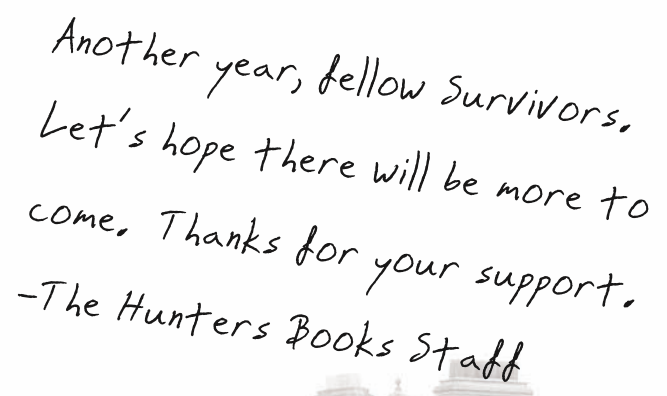 Another year, fellow Survivors.
Let's hope there will be more to
come. Thanks for your support.
-The Hunters Books Staff